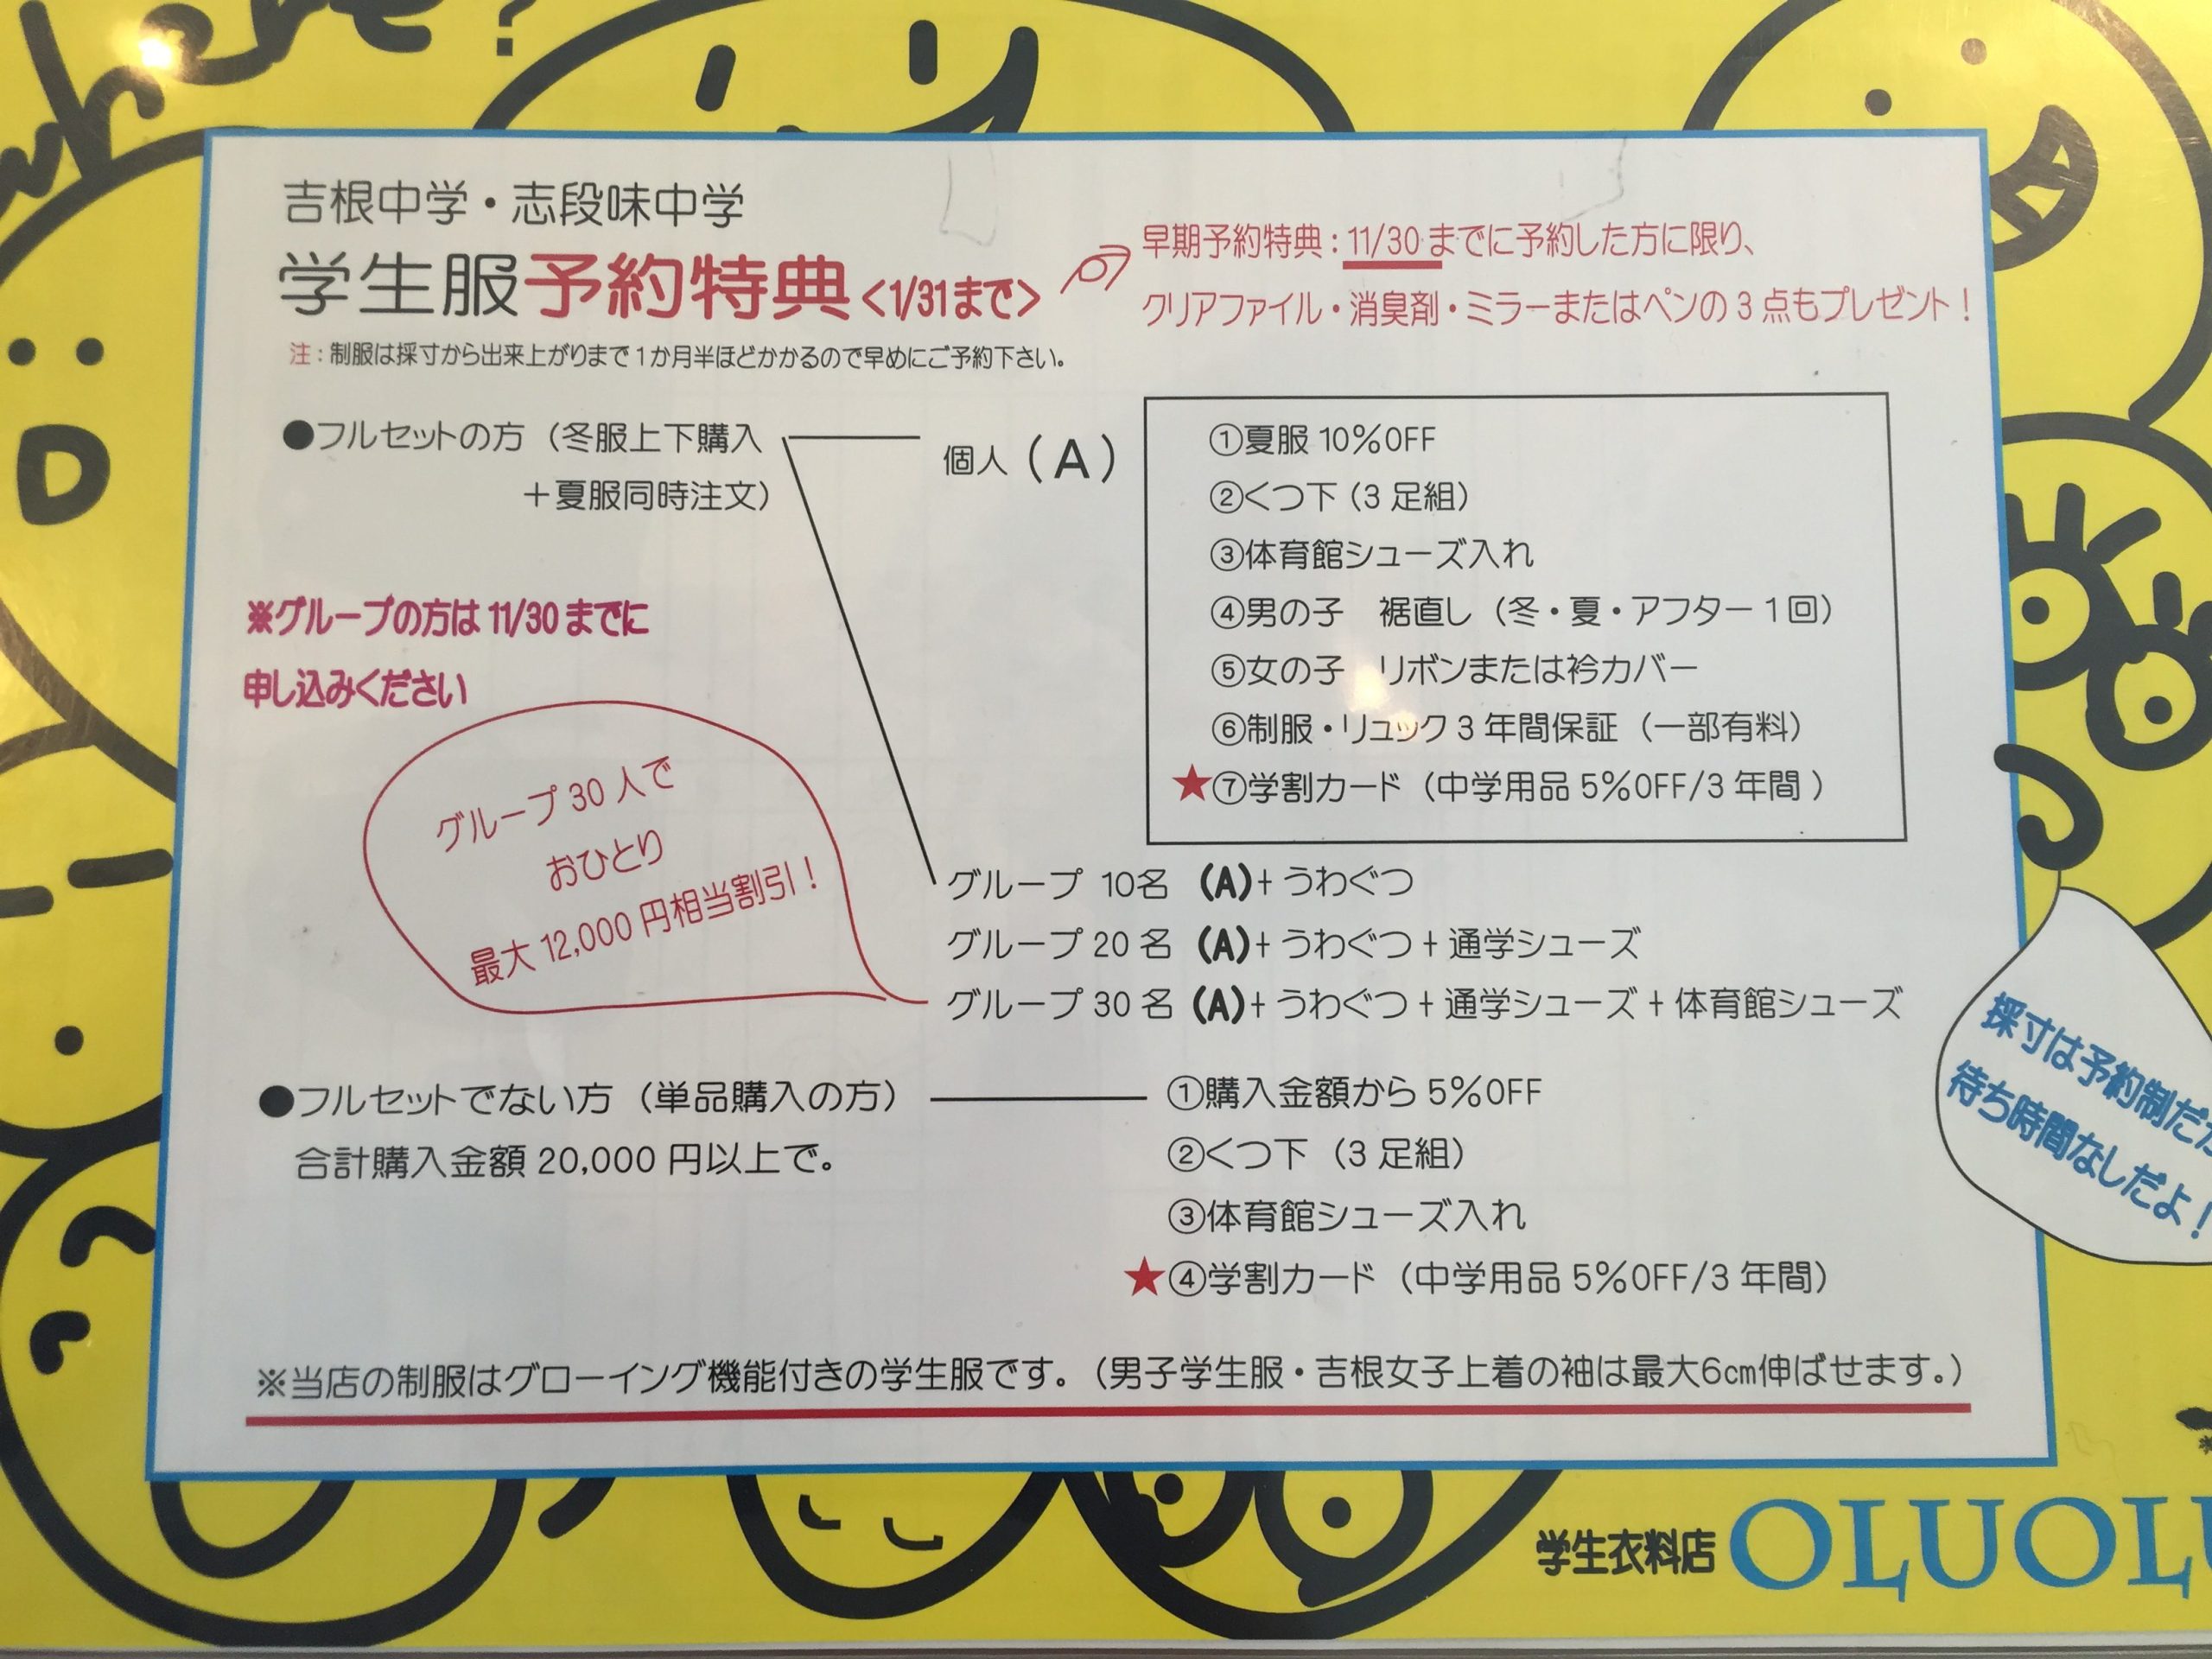 where?
吉根中学・志段味中学
学生服予約特典<1/31まで>
早期予約特典：11/30までに予約した方に限り、
クリアファイル・消臭剤・ミラーまたはペンの3点もプレゼント！
注：制服は採寸から出来上がりまで1か月半ほどかかるので早めにご予約下さい。
●フルセットの方（冬服上下購入
＋夏服同時注文）
個人（A）
①夏服10%OFF
②くつ下（3足組）
③体育館シューズ入れ
④男の子　裾直し（冬・夏・アフター1回）
⑤女の子　リボンまたは衿カバー
⑥制服・リュック3年間保証（一部有料）
★⑦学割カード（中学用品5%OFF/3年間）
※グループの方は11/30までに
申し込みください
グループ30人で
おひとり
最大12,000円相当割引！
グループ 10名 (A)+うわぐつ
グループ20名 (A)+うわぐつ+通学シューズ
グループ30名 (A)+うわぐつ+通学シューズ+体育館シューズ
●フルセットでない方（単品購入の方）
合計購入金額20,000円以上で。
①購入金額から5%OFF
②くつ下（3足組）
③体育館シューズ入れ
★④学割カード（中学用品5%OFF/3年間）
採寸は予約制だか
待ち時間なしだよ！
※当店の制服はグローイング機能付きの学生服です。（男子学生服・吉根女子上着の袖は最大6cm伸ばせます。）
学生衣料店 OLUOLU